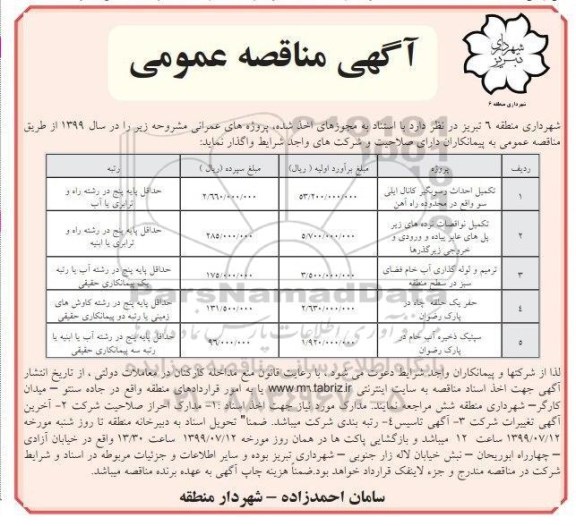 شهرداری تبریز
شهرداری منطقه ۶
آگهی مناقصه عمومی
شهرداری منطقه ۶ تبریز در نظر دارد با استناد به مجوزهای اخذ شده، پروژه های عمرانی مشروحه زیر را در سال ۱۳۹۹ از طریق
مناقصه عمومی به پیمانکاران دارای صلاحیت و شرکت های واجد شرایط واگذار نماید:
ردیف پروژه مبلغ برآورد اولیه ( ریال) مبلغ سپرده (ریال ) رتبه
۱ تکمیل احداث رسوبگیر کانال ایلی سو واقع در محدوده راه آهن ۵۳/۲۰۰/۰۰۰/۰۰۰ ۲/۶۶۰/۰۰۰/۰۰۰ حداقل پایه پنج در رشته راه و ترابری یا آب
۲ تکمیل نواقصات نرده های زیر پل های عابر پیاده و ورودی و خروجی زیرگذرها ۵/۷۰۰/۰۰۰/۰۰۰ ۲۸۵/۰۰۰/۰۰۰ حداقل پایه پنج در رشته راه و ترابری یا ابنیه
۳ ترمیم و لوله گذاری آب خام فضای سبز در سطح منطقه ۳/۵۰۰/۰۰۰/۰۰۰ ۱۷۵/۰۰۰/۰۰۰ حداقل پایه پنج در رشته آب یا رتبه یک پیمانکاری حقیقی
۴ حفر یک حلقه چاه در پارک رضوان ۲/۶۳۰/۰۰۰/۰۰۰ ۱۳۱/۵۰۰/۰۰۰ حداقل پایه پنج در رشته کاوش های زمینی یا رتبه دو پیمانکاری حقیقی
۵ سپتیک ذخیره آب خام در پارک رضوان ۱/۹۲۰/۰۰۰/۰۰۰ ۹۶/۰۰۰/۰۰۰ حداقل پایه پنج در رشته آب یا ابنیه یا رتبه سه پیمانکاری حقیقی
لذا از شرکتها و پیمانکاران واجد شرایط دعوت می شود ، با رعایت قانون منع مداخله کارکنان در معاملات دولتی ، از تاریخ انتشار
آگهی جهت اخذ اسناد مناقصه به سایت اینترنتی www.m6.tabriz.ir یا به امور قراردادهای منطقه واقع در جاده سنتو – میدان
کارگر– شهرداری منطقه شش مراجعه نمایند. مدارک مورد نیاز جهت اخذ اسناد :۱- مدارک احراز صلاحیت شرکت ۲- آخرین
آگهی تغییرات شرکت ۳- آگهی تاسیس۴- رتبه بندی شرکت میباشد. ضمنا" تحویل اسناد به دبیرخانه منطقه تا روز شنبه مورخه
۱۳۹۹/۰۷/۱۲ ساعت ۱۲ میباشد و بازگشایی پاکت ها در همان روز مورخه ۱۳۹۹/۰۷/۱۲ ساعت ۱۳/۳۰ واقع در خیابان آزادی
– چهارراه ابوریحان – نبش خیابان لاله زار جنوبی – شهرداری تبریز بوده و سایر اطلاعات و جزئیات مربوطه در اسناد و شرایط
شرکت در مناقصه مندرج و جزء لاینفک قرارداد خواهد بود.ضمناً هزینه چاپ آگهی به عهده برنده مناقصه میباشد.
سامان احمدزاده – شهردار منطقه
ParsNamadData